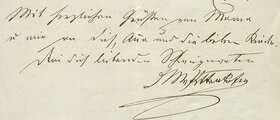 Mit herzlichen Grüßen von Mama
u mir an dich, Aua und die lieben Kinder
Dein dich liebender Schwiegervater